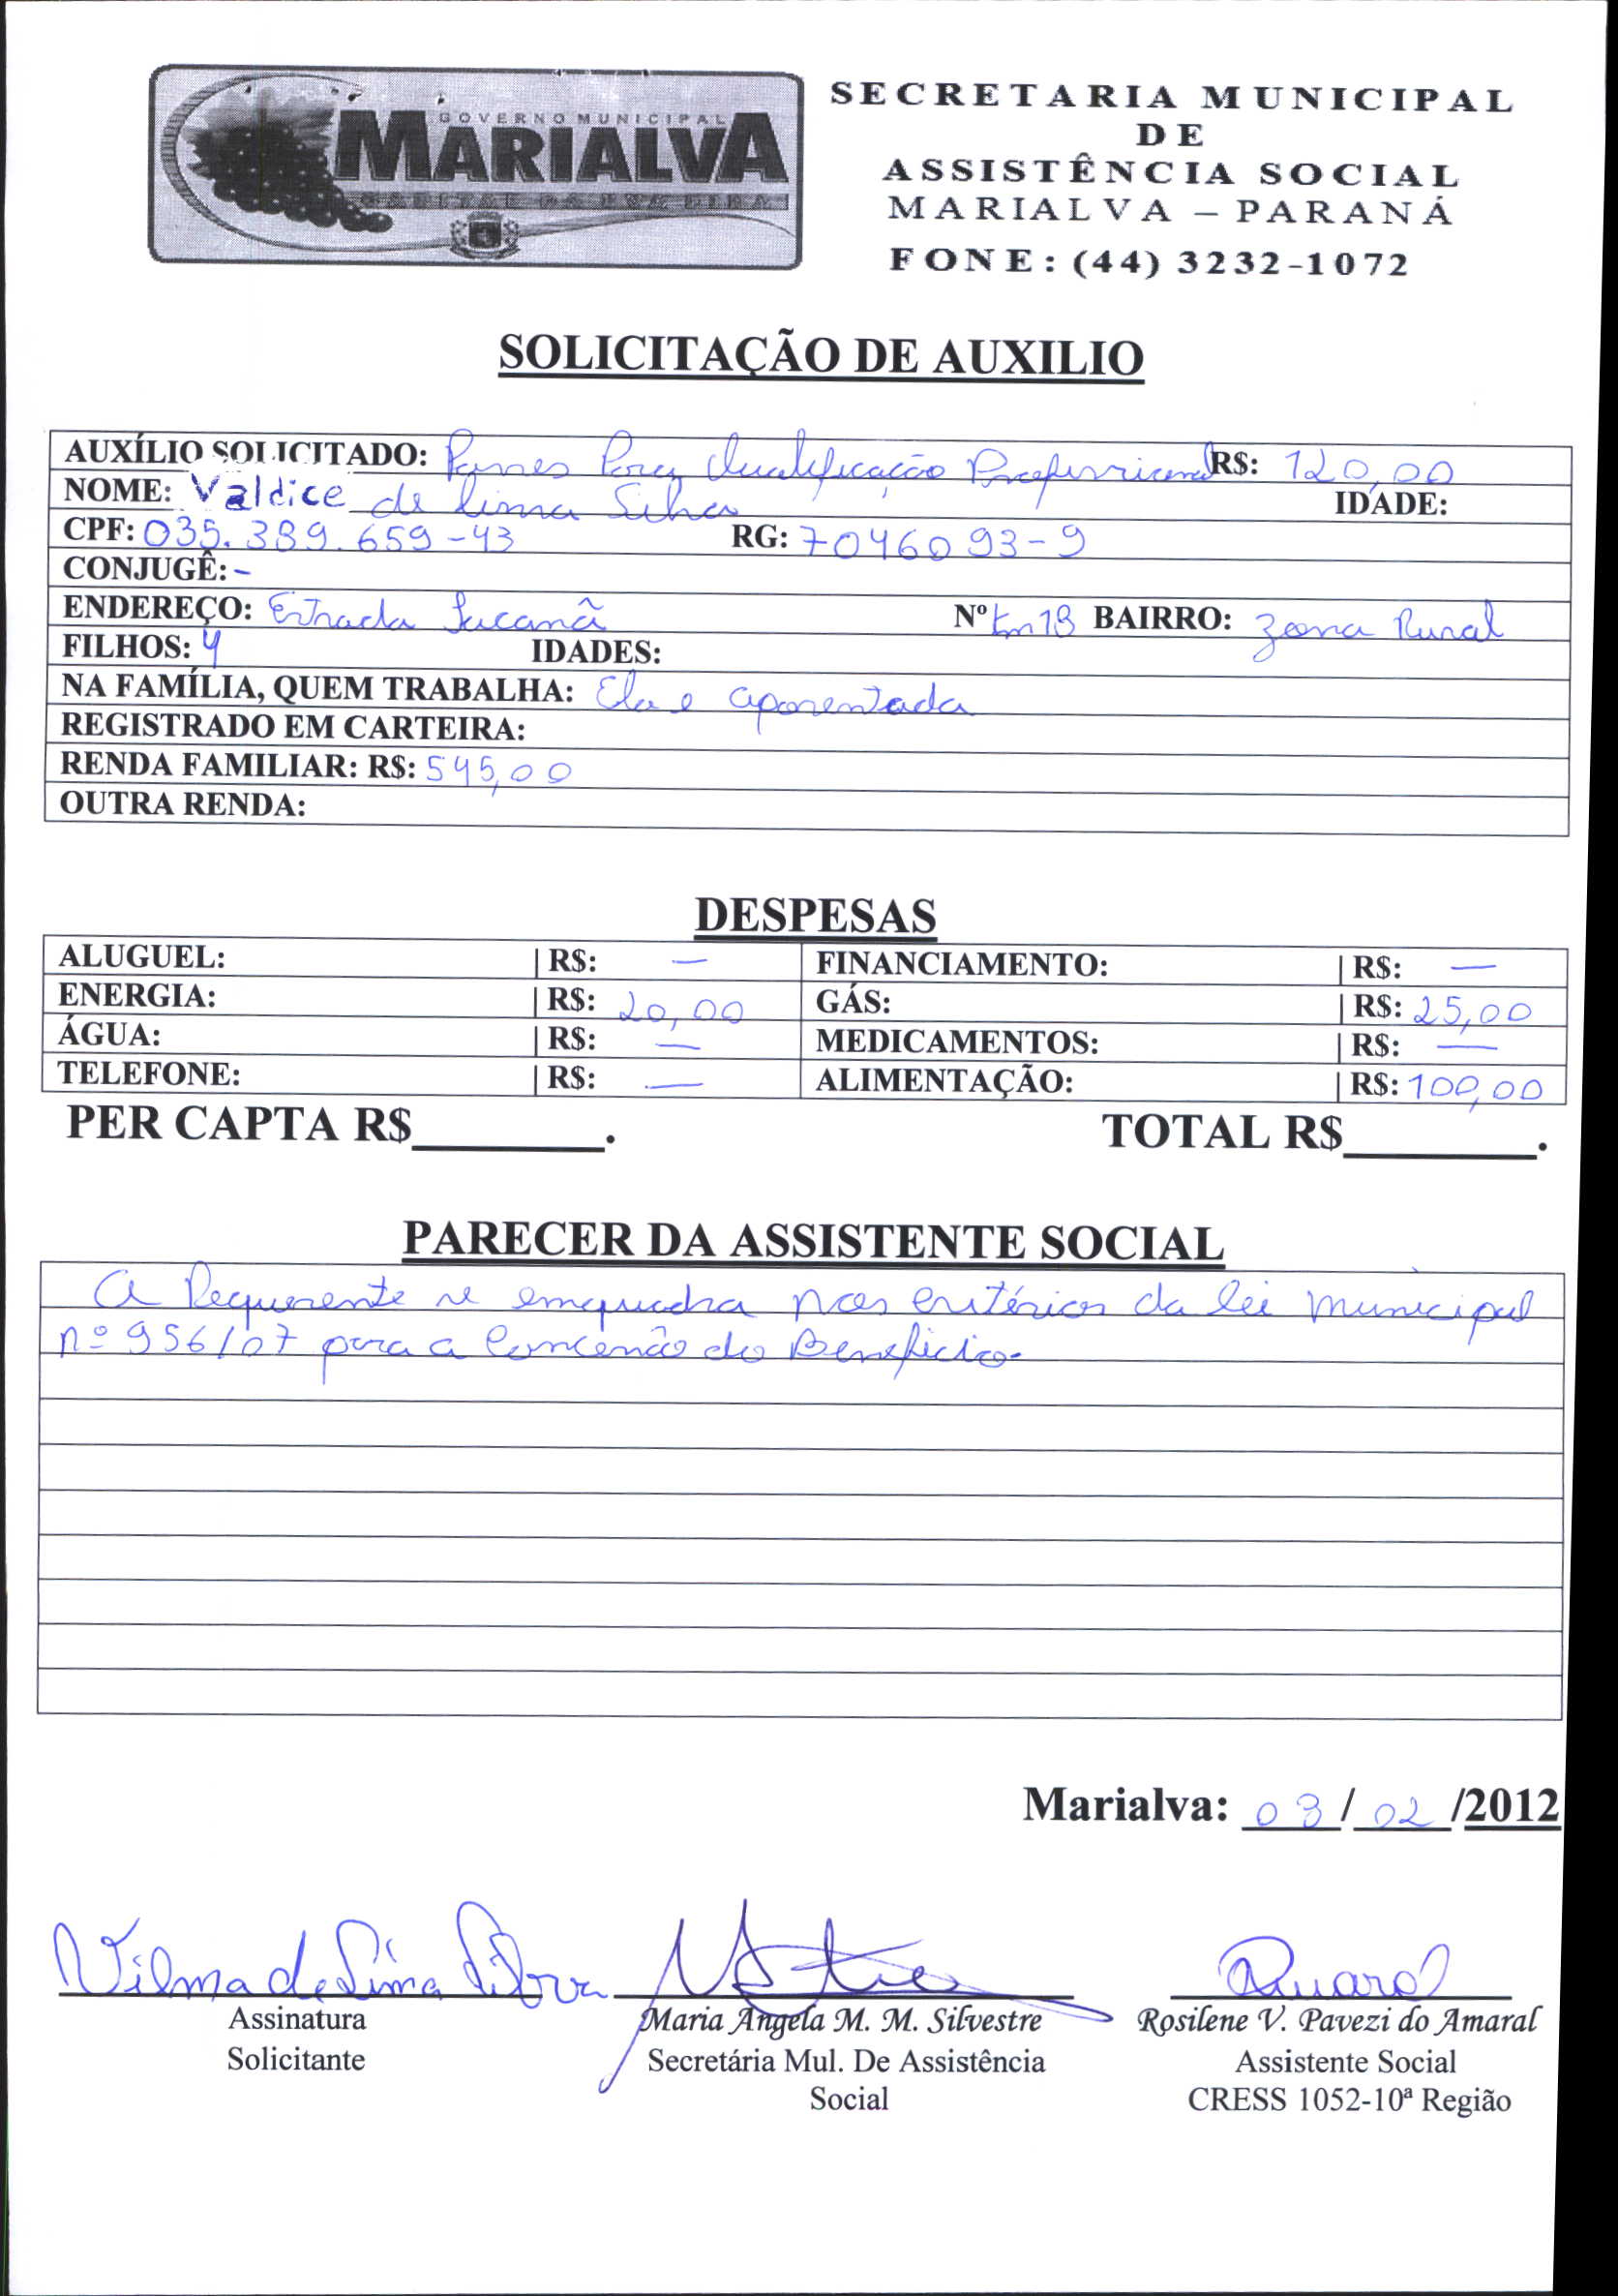 GOVERNO MUNICIPAL
MARIALVA
CAPITAL DA UVA FINA
SECRETARIA MUNICIPAL
DE
ASSISTÊNCIA SOCIAL
MARIALVA – PARANÁ
FONE: (44) 3232-1072
SOLICITAÇÃO DE AUXILIO
AUXÍLIO SOLICITADO: Passes Para Qualificação Profissional R$: 120,00
NOME: Valdice de Lima Silva IDADE:
CPF: 035.389.659-43 RG: 7046093-9
CONJUGÊ: -
ENDEREÇO: Estrada Nº km 13 BAIRRO: Zona Rural
FILHOS: 4 IDADES:
NA FAMÍLIA, QUEM TRABALHA: Ela e aposentada
REGISTRADO EM CARTEIRA:
RENDA FAMILIAR: R$: 545,00
OUTRA RENDA:
DESPESAS
ALUGUEL: | R$: — FINANCIAMENTO: | R$: —
ENERGIA: | R$: 20,00 GÁS: | R$: 25,00
ÁGUA: | R$: — MEDICAMENTOS: | R$: —
TELEFONE: | R$: — ALIMENTAÇÃO: | R$: 100,00
PER CAPTA R$________. TOTAL R$________.
PARECER DA ASSISTENTE SOCIAL
A Requerente se emquadra nos critérios da lei municipal
nº 956/07 para a Concessão do Beneficio.
Marialva: 03/02/2012
Vilma de Lima Silva
Amaral
Assinatura
Solicitante
Maria Ângela M. M. Silvestre
Secretária Mul. De Assistência
Social
Rosilene V. Pavezi do Amaral
Assistente Social
CRESS 1052-10ª Região